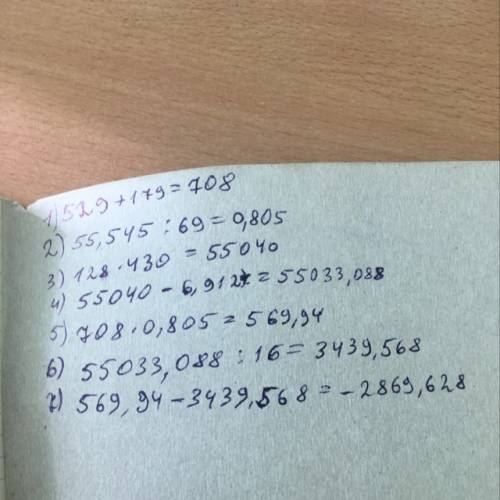 1) 529 + 179 = 708
2) 55,545 : 69 = 0,805
3) 128 · 430 = 55040
4) 55040 - 6,912 = 55033,088
5) 708 · 0,805 = 569,94
6) 55033,088 : 16 = 3439,568
7) 569,94 - 3439,568 = - 2869,628